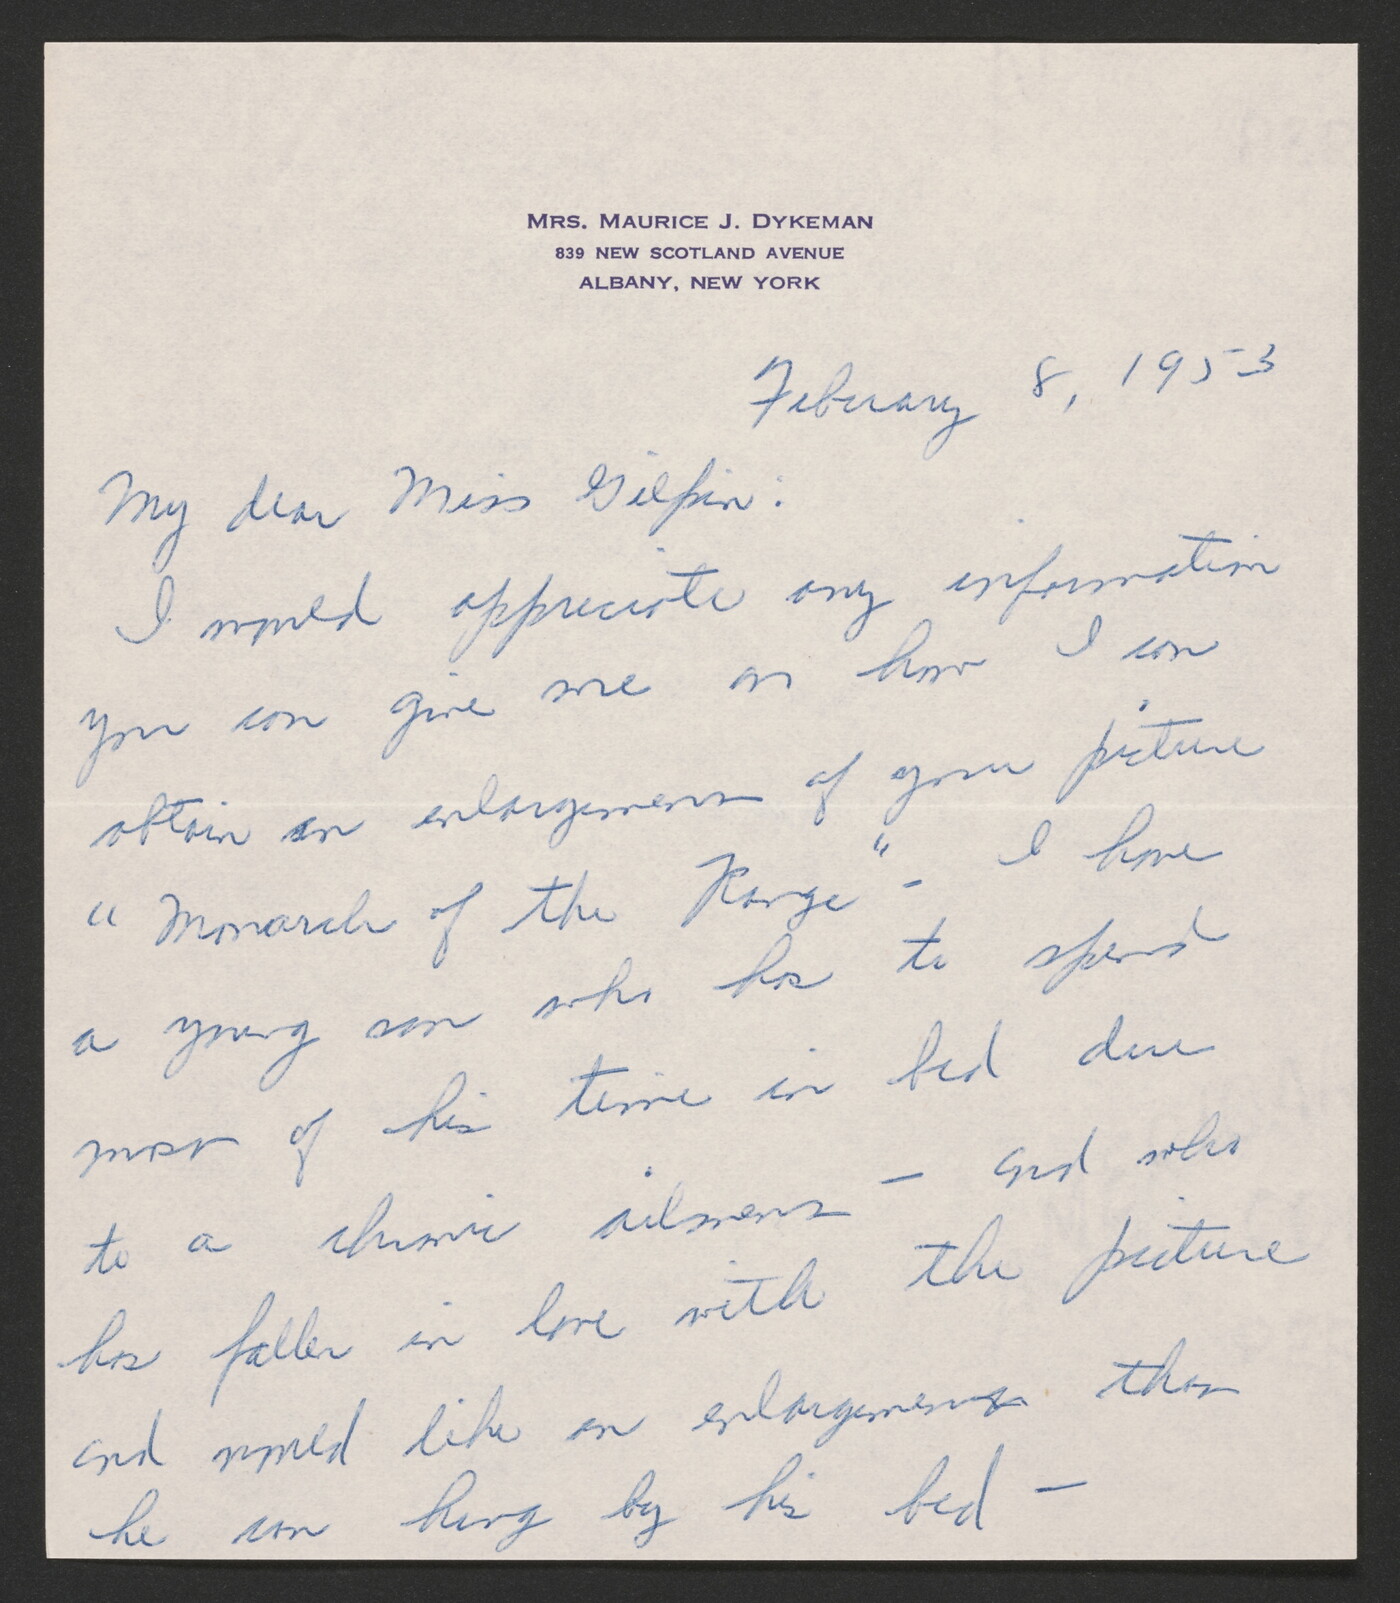 MRS. MAURICE J. DYKEMAN
839 NEW SCOTLAND AVENUE
ALBANY, NEW YORK
February 8, 1953
My dear Miss Gilpin:
I would appreciate any information
you can give me on how I can
obtain an enlargement of your picture
"Monarch of the Range" - I have
a young son who has to spend
most of his time in bed due
to a chronic ailment - and who
has fallen in love with the picture
and would like an enlargement that
he can hang by his bed -